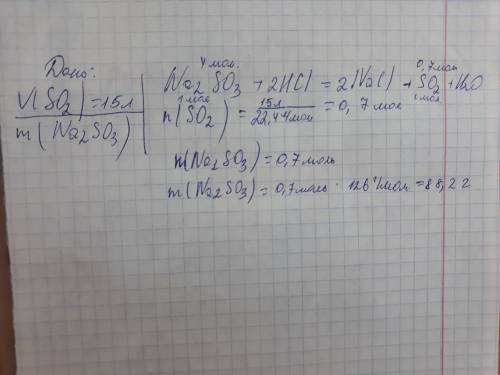 Дано:
V(SO2) = 15 л
m(Na2SO3)
0,7 мол
Na2SO3 + 2HCl = 2NaCl + SO2 + H2O
1 мол 1 мол
n(SO2) = 15л / 22,4 л/мол = 0,7 мол
n(Na2SO3) = 0,7 моль
m(Na2SO3) = 0,7 моль · 126 г/моль = 88,2 г